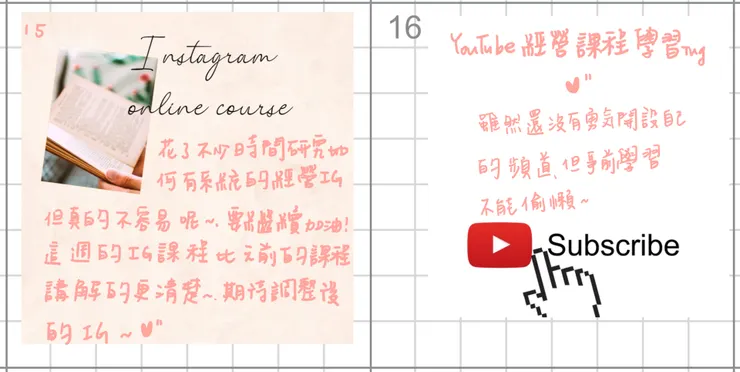 15
Instagram
online course
花了不少時間研究如
何有系統的經營IG
但真的不容易呢~. 要繼續加油!
這週的IG課程比之前的課程
講解的更清楚~. 期待調整後
的IG~
16
YouTube經營課程學習ing
雖然還沒有勇氣開設自己
的頻道, 但事前學習
不能偷懶~
Subscribe